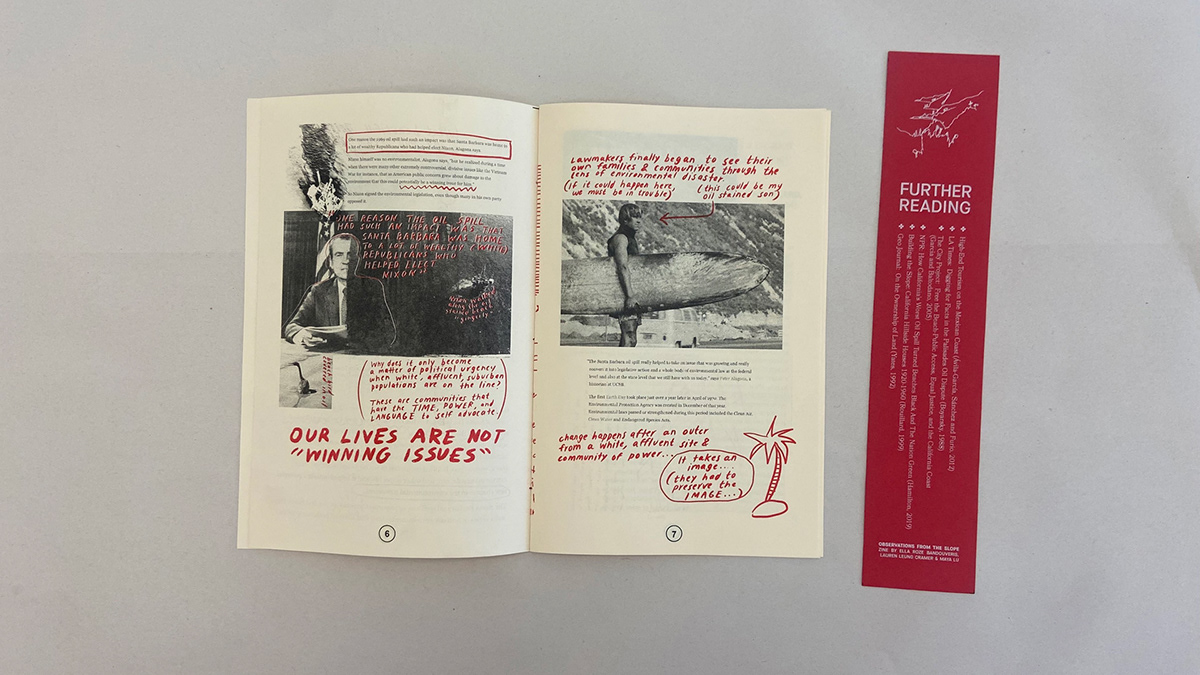 One reason the 1969 oil spill had such an impact was that Santa Barbara was home to
a lot of wealthy Republicans who had helped elect Nixon, Alagona says.
Nixon himself was no environmentalist, Alagona says, "but he realized during a time
when there were many other extremely controversial, divisive issues like the Vietnam
War for instance, that an American public concern grew about damage to the
environment that this could potentially be a winning issue for him."
signed the environmental legislation, even though many in his own party
opposed it.
"ONE REASON THE OIL SPILL
HAD SUCH AN IMPACT WAS THAT
SANTA BARBARA WAS HOME
TO A LOT OF WEALTHY (WHITE)
REPUBLICANS WHO
HELPED ELECT
NIXON"
(Why does it only become
a matter of political urgency
when white, affluent, suburban
populations are on the line?
These are communities that
have the TIME, POWER, and
LANGUAGE to self advocate.)
OUR LIVES ARE NOT
"WINNING ISSUES"
6
Lawmakers finally began to see their
own families & communities through the
lens of environmental disaster.
(if it could happen here
we must be in trouble)
(this could be my
oil stained son)
"The Santa Barbara oil spill really helped to take an issue that was growing and really
convert it into legislative action and a whole body of environmental law at the federal
level and also at the state level that we still have with us today," says Peter Alagona, a
historian at UCSB.
The first Earth Day took place just over a year later in April of 1970. The
Environmental Protection Agency was created in December of that year.
Environmental laws passed or strengthened during this period included the Clean Air,
Clean Water and Endangered Species Acts.
change happens after an outer
from a white, affluent site &
community of power...
It takes an
image....
(they had to
preserve the
IMAGE...)
7
FURTHER
READING
High-End Tourism on the Mexican Coast (Ávila-García, Sánchez and Furio, 2012)
LA Times: Digging for Facts in the Palisades Oil Dispute (Boyarsky, 1988)
The City Project: Free the Beach-Public Access, Equal Justice, and the California Coast
(Garcia and Baltodano, 2005)
NPR: How California's Worst Oil Spill Turned Beaches Black And The Nation Green (Hamilton, 2019)
Building the Slope: California Hillside Houses 1920-1960 (Rouillard, 1999)
Geo Journal: On the Ownership of Land (Yates, 1992)
OBSERVATIONS FROM THE SLOPE
ZINE BY ELLA ROZE BANDOUVERIS,
LAUREN LEUNG CRAMER & MAYA LU